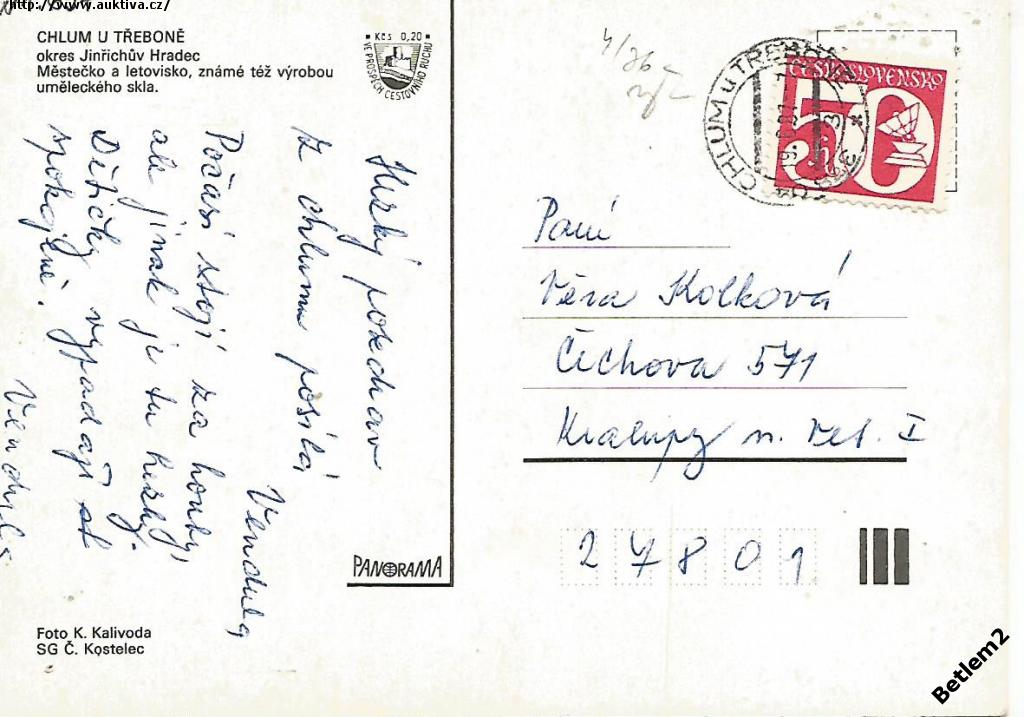 http://www.auktiva.cz/
CHLUM U TŘEBONĚ
okres Jinřichův Hradec
Městečko a letovisko, známé též výrobou
uměleckého skla.
Kčs 0,20
VE PROSPĚCH CESTOVNÍHO RUCHU
Hezký pozdrav
z chlumu posílá
Vendula
Počasí stojí za houby,
ale jinak je tu hezky.
Dětičky vypadají
spokojeně.
PANORAMA
Foto K. Kalivoda
SG Č. Kostelec
CHLUM u TŘEBONĚ
ČESKOSLOVENSKO
50
Paní
Věra Kolková
Čechova 571
Kralupy n. Vlt. I
27801
Betlem2